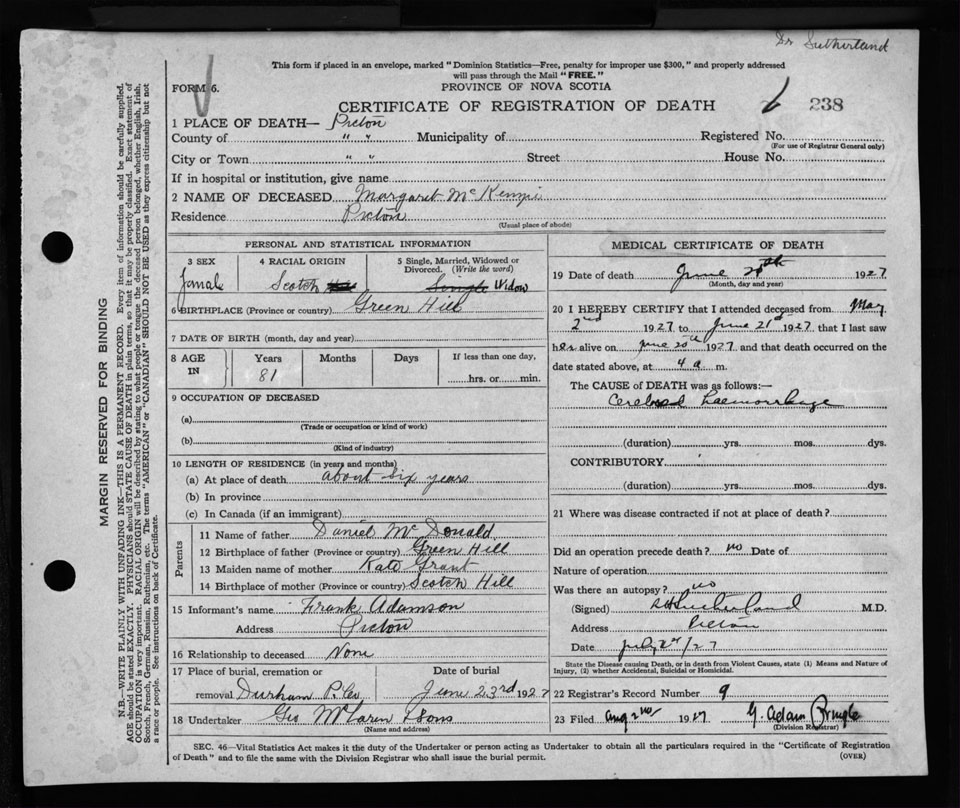 Dr Sutherland
This form if placed in an envelope, marked "Dominion Statistics—Free, penalty for improper use $300," and properly addressed
will pass through the Mail "FREE."
FORM 6.
PROVINCE OF NOVA SCOTIA
CERTIFICATE OF REGISTRATION OF DEATH
238
1 PLACE OF DEATH— Pictou
County of " " Municipality of Registered No.
(For use of Registrar General only)
City or Town " " Street House No.
If in hospital or institution, give name
2 NAME OF DECEASED Margaret McKenzie
Residence Pictou
(Usual place of abode)
PERSONAL AND STATISTICAL INFORMATION
3 SEX
Female
4 RACIAL ORIGIN
Scotch
5 Single, Married, Widowed or
Divorced. (Write the word)
Single Widow
6 BIRTHPLACE (Province or country) Green Hill
7 DATE OF BIRTH (month, day and year)
8 AGE
IN
Years
81
Months
Days
If less than one day,
hrs. or min.
9 OCCUPATION OF DECEASED
(a)
(Trade or occupation or kind of work)
(b)
(Kind of industry)
10 LENGTH OF RESIDENCE (in years and months)
(a) At place of death about six years
(b) In province
(c) In Canada (if an immigrant)
Parents
11 Name of father Daniel McDonald
12 Birthplace of father (Province or country) Green Hill
13 Maiden name of mother Kate Grant
14 Birthplace of mother (Province or country) Scotch Hill
15 Informant's name Frank Adamson
Address Pictou
16 Relationship to deceased None
17 Place of burial, cremation or
removal Durham P. Co
Date of burial
June 23rd 1927
18 Undertaker Geo McLaren & Sons
(Name and address)
MEDICAL CERTIFICATE OF DEATH
19 Date of death June 1927
(Month, day and year)
20 I HEREBY CERTIFY that I attended deceased from May
2nd 1927 to June 21st 1927 that I last saw
her alive on June 20th 1927 and that death occurred on the
date stated above, at 4 a m.
The CAUSE OF DEATH was as follows:—
Cerebral haemorrhage
(duration) yrs. mos. dys.
CONTRIBUTORY
(duration) yrs. mos. dys.
21 Where was disease contracted if not at place of death?
Did an operation precede death? no Date of
Nature of operation
Was there an autopsy? no
(Signed) Sutherland M.D.
Address Pictou
Date July 2nd/27
State the Disease causing Death, or in death from Violent Causes, state (1) Means and Nature of
Injury, (2) whether Accidental, Suicidal or Homicidal.
22 Registrar's Record Number 9
23 Filed Aug 2nd 1927 G. Adam Pringle
(Division Registrar)
SEC. 46—Vital Statistics Act makes it the duty of the Undertaker or person acting as Undertaker to obtain all the particulars required in the "Certificate of Registration
of Death" and to file the same with the Division Registrar who shall issue the burial permit.
(OVER)
MARGIN RESERVED FOR BINDING
N.B.—WRITE PLAINLY WITH UNFADING INK—THIS IS A PERMANENT RECORD. Every item of information should be carefully supplied.
AGE should be stated EXACTLY. PHYSICIANS should STATE CAUSE OF DEATH in plain terms, so that it may be properly classified. Exact statement of
OCCUPATION is very important. RACIAL ORIGIN will be described by stating to what people or tongue the deceased person belonged, whether English, Irish,
Scotch, French, German, Russian, Ruthenian, etc. The terms "AMERICAN" or "CANADIAN" SHOULD NOT BE USED as they express citizenship but not
a race or people. See instructions on back of Certificate.